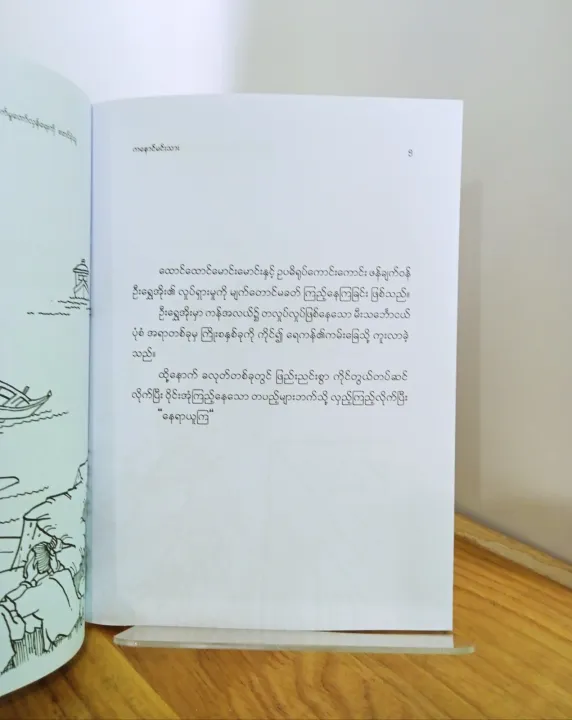 ကနောင်မင်းသား
၅
ထောင်ထောင်မောင်းမောင်းနှင့် ဥပဓိရုပ်ကောင်းကောင်း ဖန်ချက်ဝန်
ဦးရွှေအိုး၏ လှုပ်ရှားမှုကို မျက်တောင်မခတ် ကြည့်နေကြခြင်း ဖြစ်သည်။
ဦးရွှေအိုးမှာ ကန်အလယ်၌ တလှုပ်လှုပ်ဖြစ်နေသော မီးသင်္ဘောငယ်
ပုံစံ အရာတစ်ခုမှ ကြိုးစနှစ်ခုကို ကိုင်၍ ရေကန်၏ကမ်းခြေသို့ ကူးလာခဲ့
သည်။
ထို့နောက် ခလုတ်တစ်ခုတွင် ဖြည်းညင်းစွာ ကိုင်တွယ်တပ်ဆင်
လိုက်ပြီး ဝိုင်းအုံကြည့်နေသော တပည့်များဘက်သို့ လှည့်ကြည့်လိုက်ပြီး
"နေရာယူကြ"